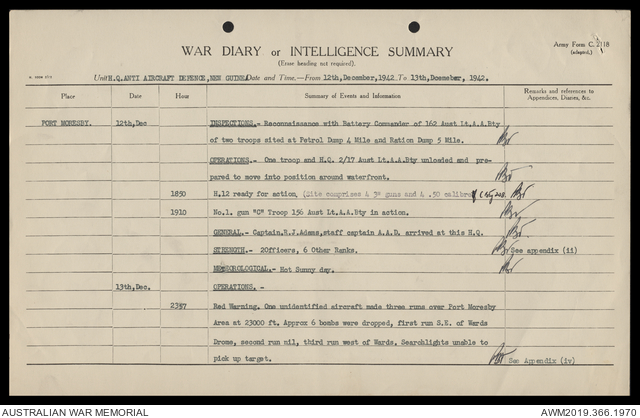 Army Form C. 2118
(adapted.)
WAR DIARY or INTELLIGENCE SUMMARY
(Erase heading not required).
Unit H.Q.ANTI AIRCRAFT DEFENCE,NEW GUINEA Date and Time.—From 12th,December,1942. To 13th,December,1942.
Place Date Hour Summary of Events and Information Remarks and references to
Appendices, Diaries, &c.
PORT MORESBY. 12th,Dec INSPECTIONS.- Reconnaissance with Battery Commander of 162 Aust Lt.A.A.Bty
of two troops sited at Petrol Dump 4 Mile and Ration Dump 5 Mile.
OPERATIONS.- One troop and H.Q. 2/17 Aust Lt.A.A.Bty unloaded and pre-
pared to move into position around waterfront.
1850 H.12 ready for action, (Site comprises 4 3" guns and 4 .50 calibre
1910 No.1. gun "C" Troop 156 Aust Lt.A.A.Bty in action.
GENERAL.- Captain.R.J.Adams,staff captain A.A.D. arrived at this H.Q.
STRENGTH.- 2Officers, 6 Other Ranks. See appendix (ii)
METEOROLOGICAL.- Hot Sunny day.
13th,Dec. OPERATIONS. -
2357 Red Warning. One unidentified aircraft made three runs over Port Moresby
Area at 23000 ft. Approx 6 bombs were dropped, first run S.E. of Wards
Drome, second run nil, third run west of Wards. Searchlights unable to
pick up target. See Appendix (iv)
AUSTRALIAN WAR MEMORIAL AWM2019.366.1970